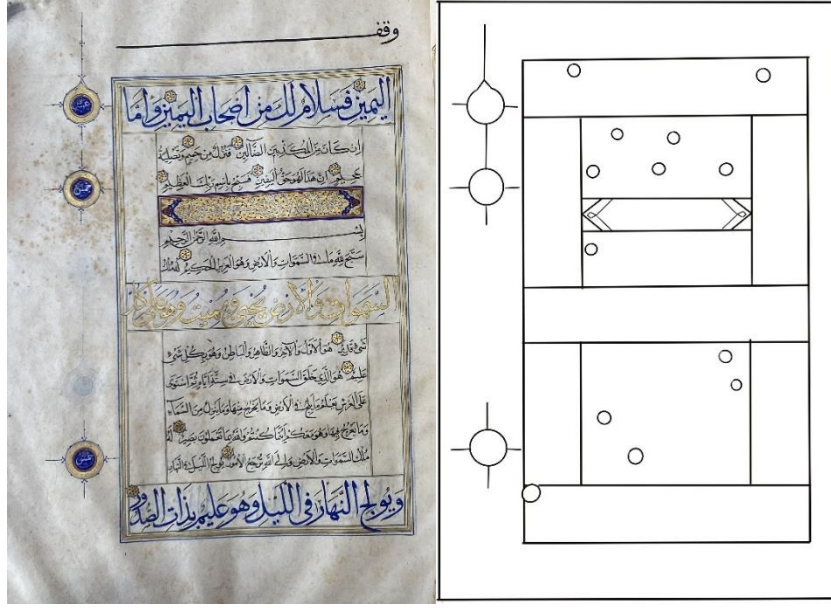 وقف
اليمين فسلام لك من اصحاب اليمين واما
ان كان من المكذبين الضالين فنزل من حميم وتصلية
جحيم ان هذا لهو حق اليقين فسبح باسم ربك العظيم
بسم الله الرحمن الرحيم
سبح لله ما في السموات والارض وهو العزيز الحكيم له ملك
السموات والارض يحيي ويميت وهو على كل
شيء قدير هو الاول والآخر والظاهر والباطن وهو بكل شيء
عليم هو الذي خلق السموات والارض في ستة ايام ثم استوى
على العرش يعلم ما يلج في الارض وما يخرج منها وما ينزل من السماء
وما يعرج فيها وهو معكم اين ما كنتم والله بما تعملون بصير له
ملك السموات والارض والى الله ترجع الامور يولج الليل في النهار
ويولج النهار في الليل وهو عليم بذات الصدور